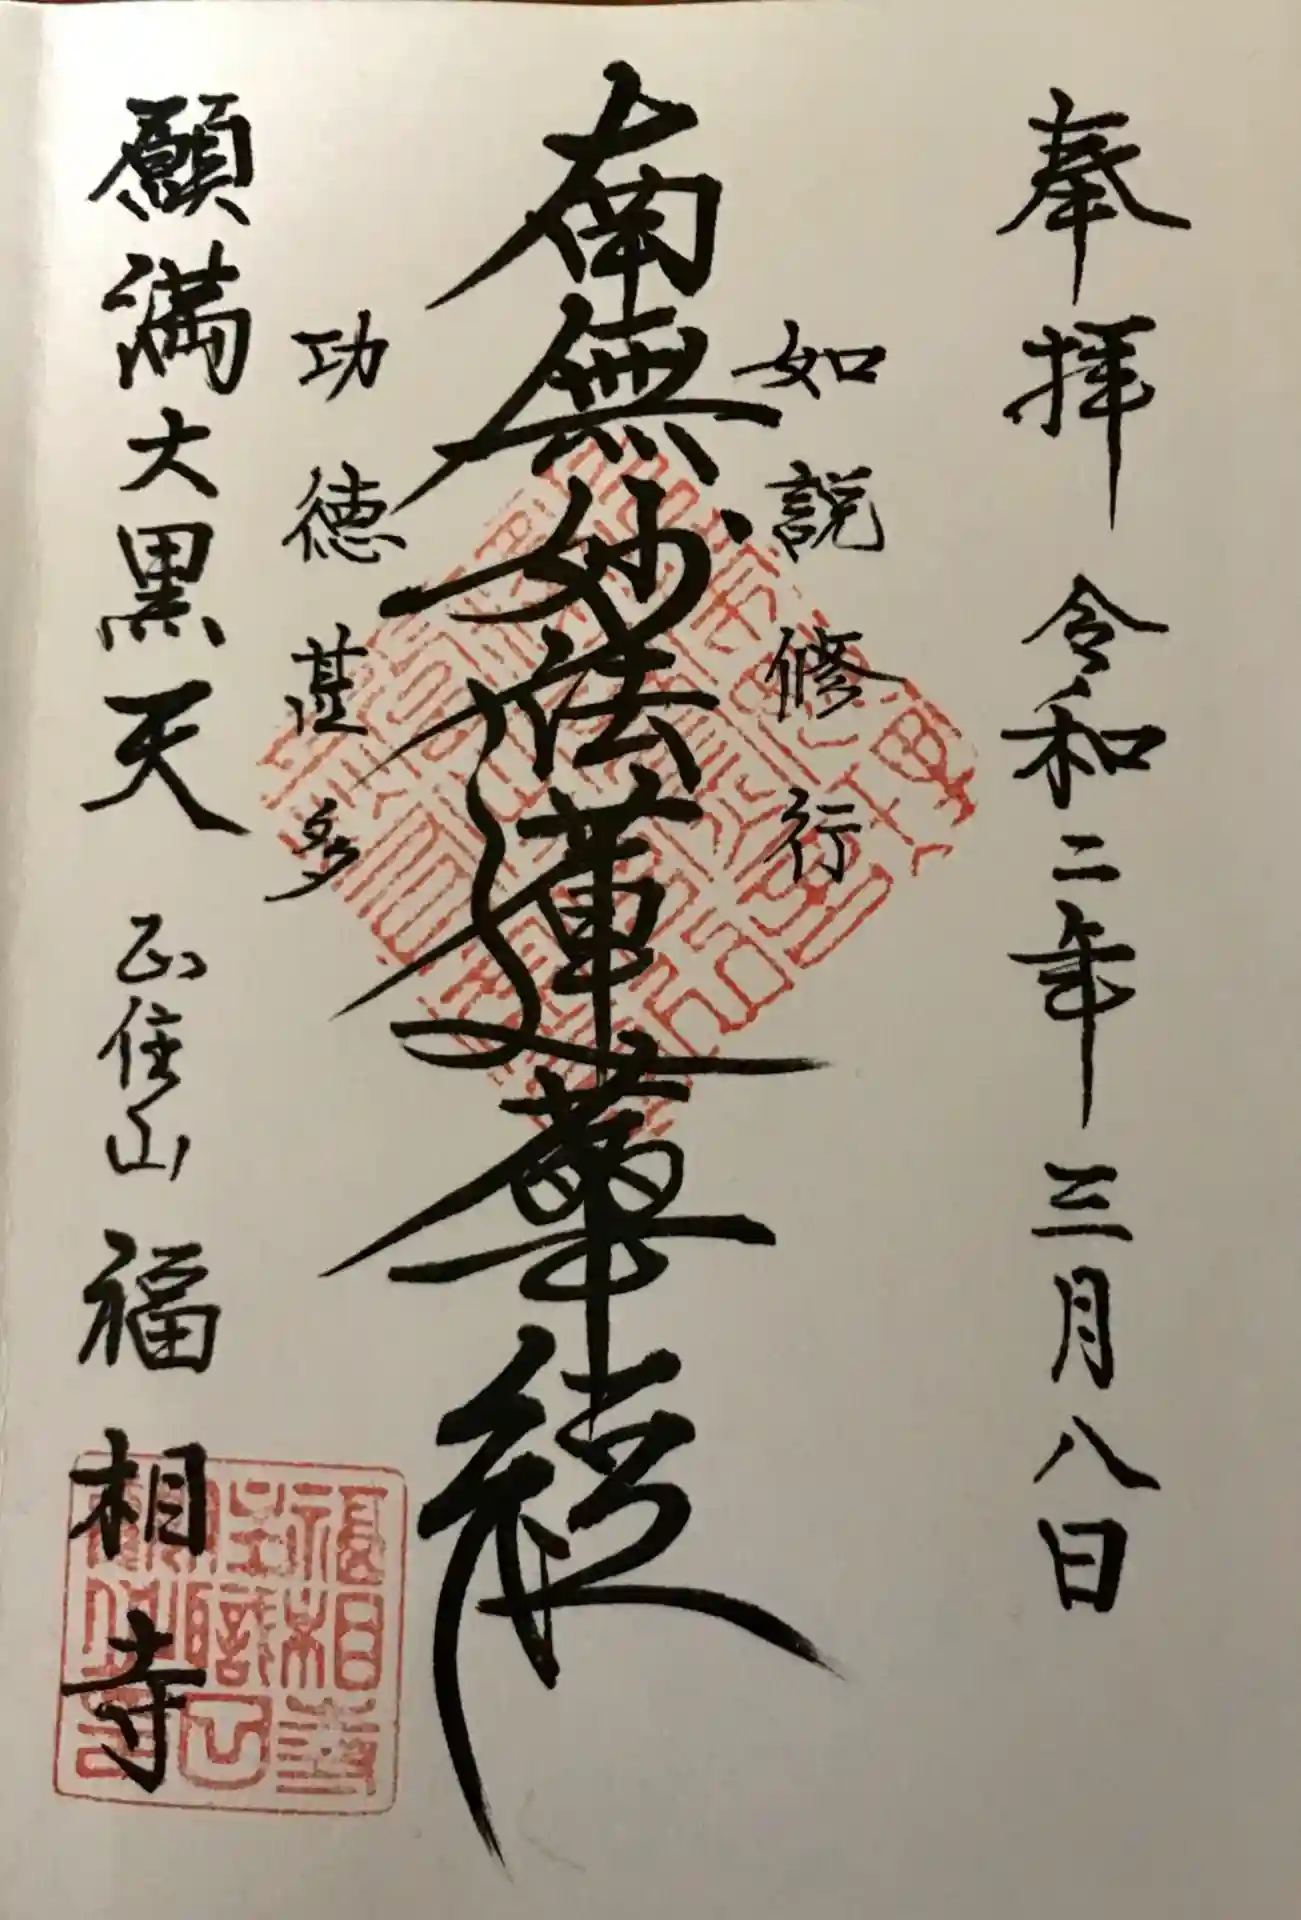 奉拝 令和二年三月八日
如説修行
南無妙法蓮華経
功徳甚多
願満大黒天 正住山 福相寺
福相寺